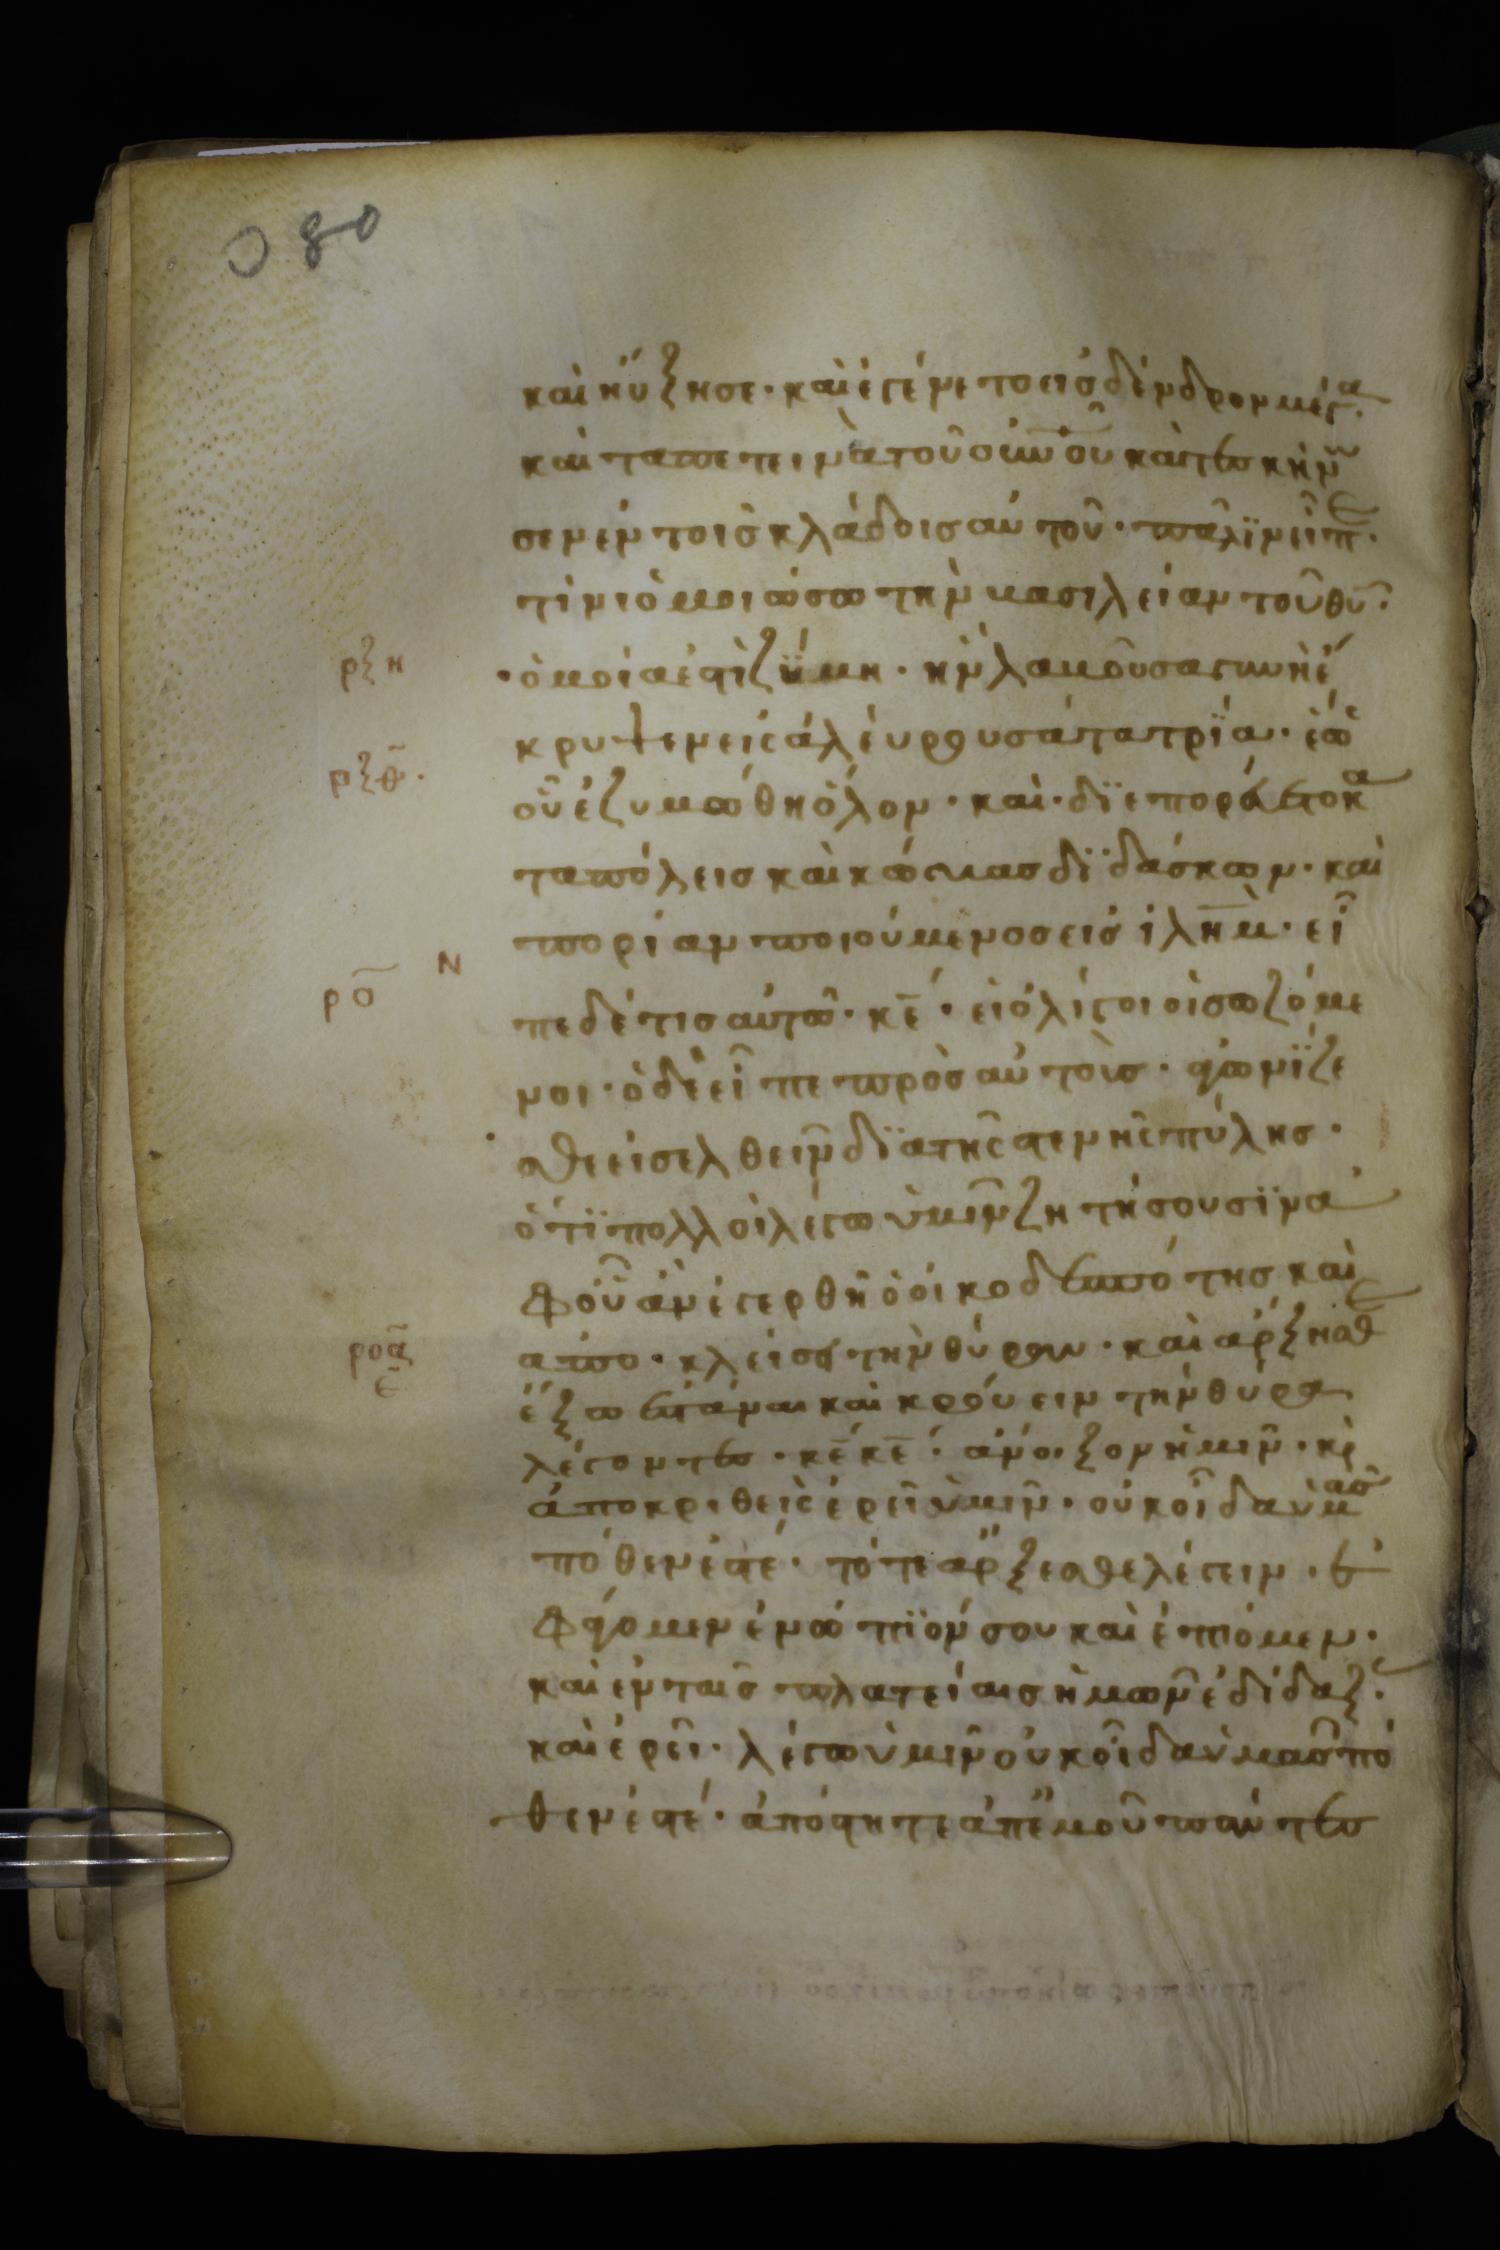 080
καὶ ηὔξησε· καὶ ἐγένετο εἰς δένδρον μέγα·
καὶ τα πετεινὰ τοῦ οὐνοῦ κατεσκήνω
σεν ἐν τοῖς κλάδοις αὐτοῦ· πάλϊν εἶπε·
τίνι ὁμοιώσω τὴν βασιλείαν τοῦ θυ·
ρξη
· ὁμοία ἐστὶ ζύμη· ἣν λαβοῦσα γυνὴ ἐ
κρυψεν εἰς ἀλέυρου σάτα τρΐα· ἑὼς
ρξθ·
οὗ ἐζυμώθη ὅλον· καὶ· δϊεπορέυετο κα
τα πόλεις καὶ κώμας δϊδάσκων· καὶ
πορίαν ποιούμενος εἰς ἱλημ· εἶ
ρο Ν
πε δέ τις αὐτῶ· κε· εἰ ὀλίγοι οἱ σωζόμε
νοι· ὁ δὲ εἶπε πρὸς αὐτοὺς· ἀγωνΐζε
σθε εἰσελθεῖν δϊα τῆς στενῆς πύλης·
ὅτϊ πολλοὶ λέγω ὑμῖν ζητήσουσϊν α
φ οὗ ἂν ἐγερθῆ ὁ οἰκοδεσπότης καὶ
ροα
ε
απο· κλείσει τὴν θύραν· καὶ ἄρξησθε
ἔξω ἑστάναι καὶ κρούειν τὴν θύρα
λέγοντες· κε κε· ἄνοιξον ἡμῖν· κὶ
ἀποκριθεὶς ἐρεῖ ὑμῖν· οὐκ οἶδα ὑμας
πόθεν ἐστέ· τότε ἄρξεσθε λέγειν· ἐ
φάγομεν ἐνώπϊόν σου καὶ ἐπιόμεν·
καὶ ἐν ταῖς πλατείαις ἡμῶν ἐδίδαξ·
καὶ ἐρεῖ· λέγω ὑμῖν οὐκ οἶδα ὑμᾶς πό
θεν ἐστέ· ἀπόστητε ἀπ ἐμοῦ πάντες